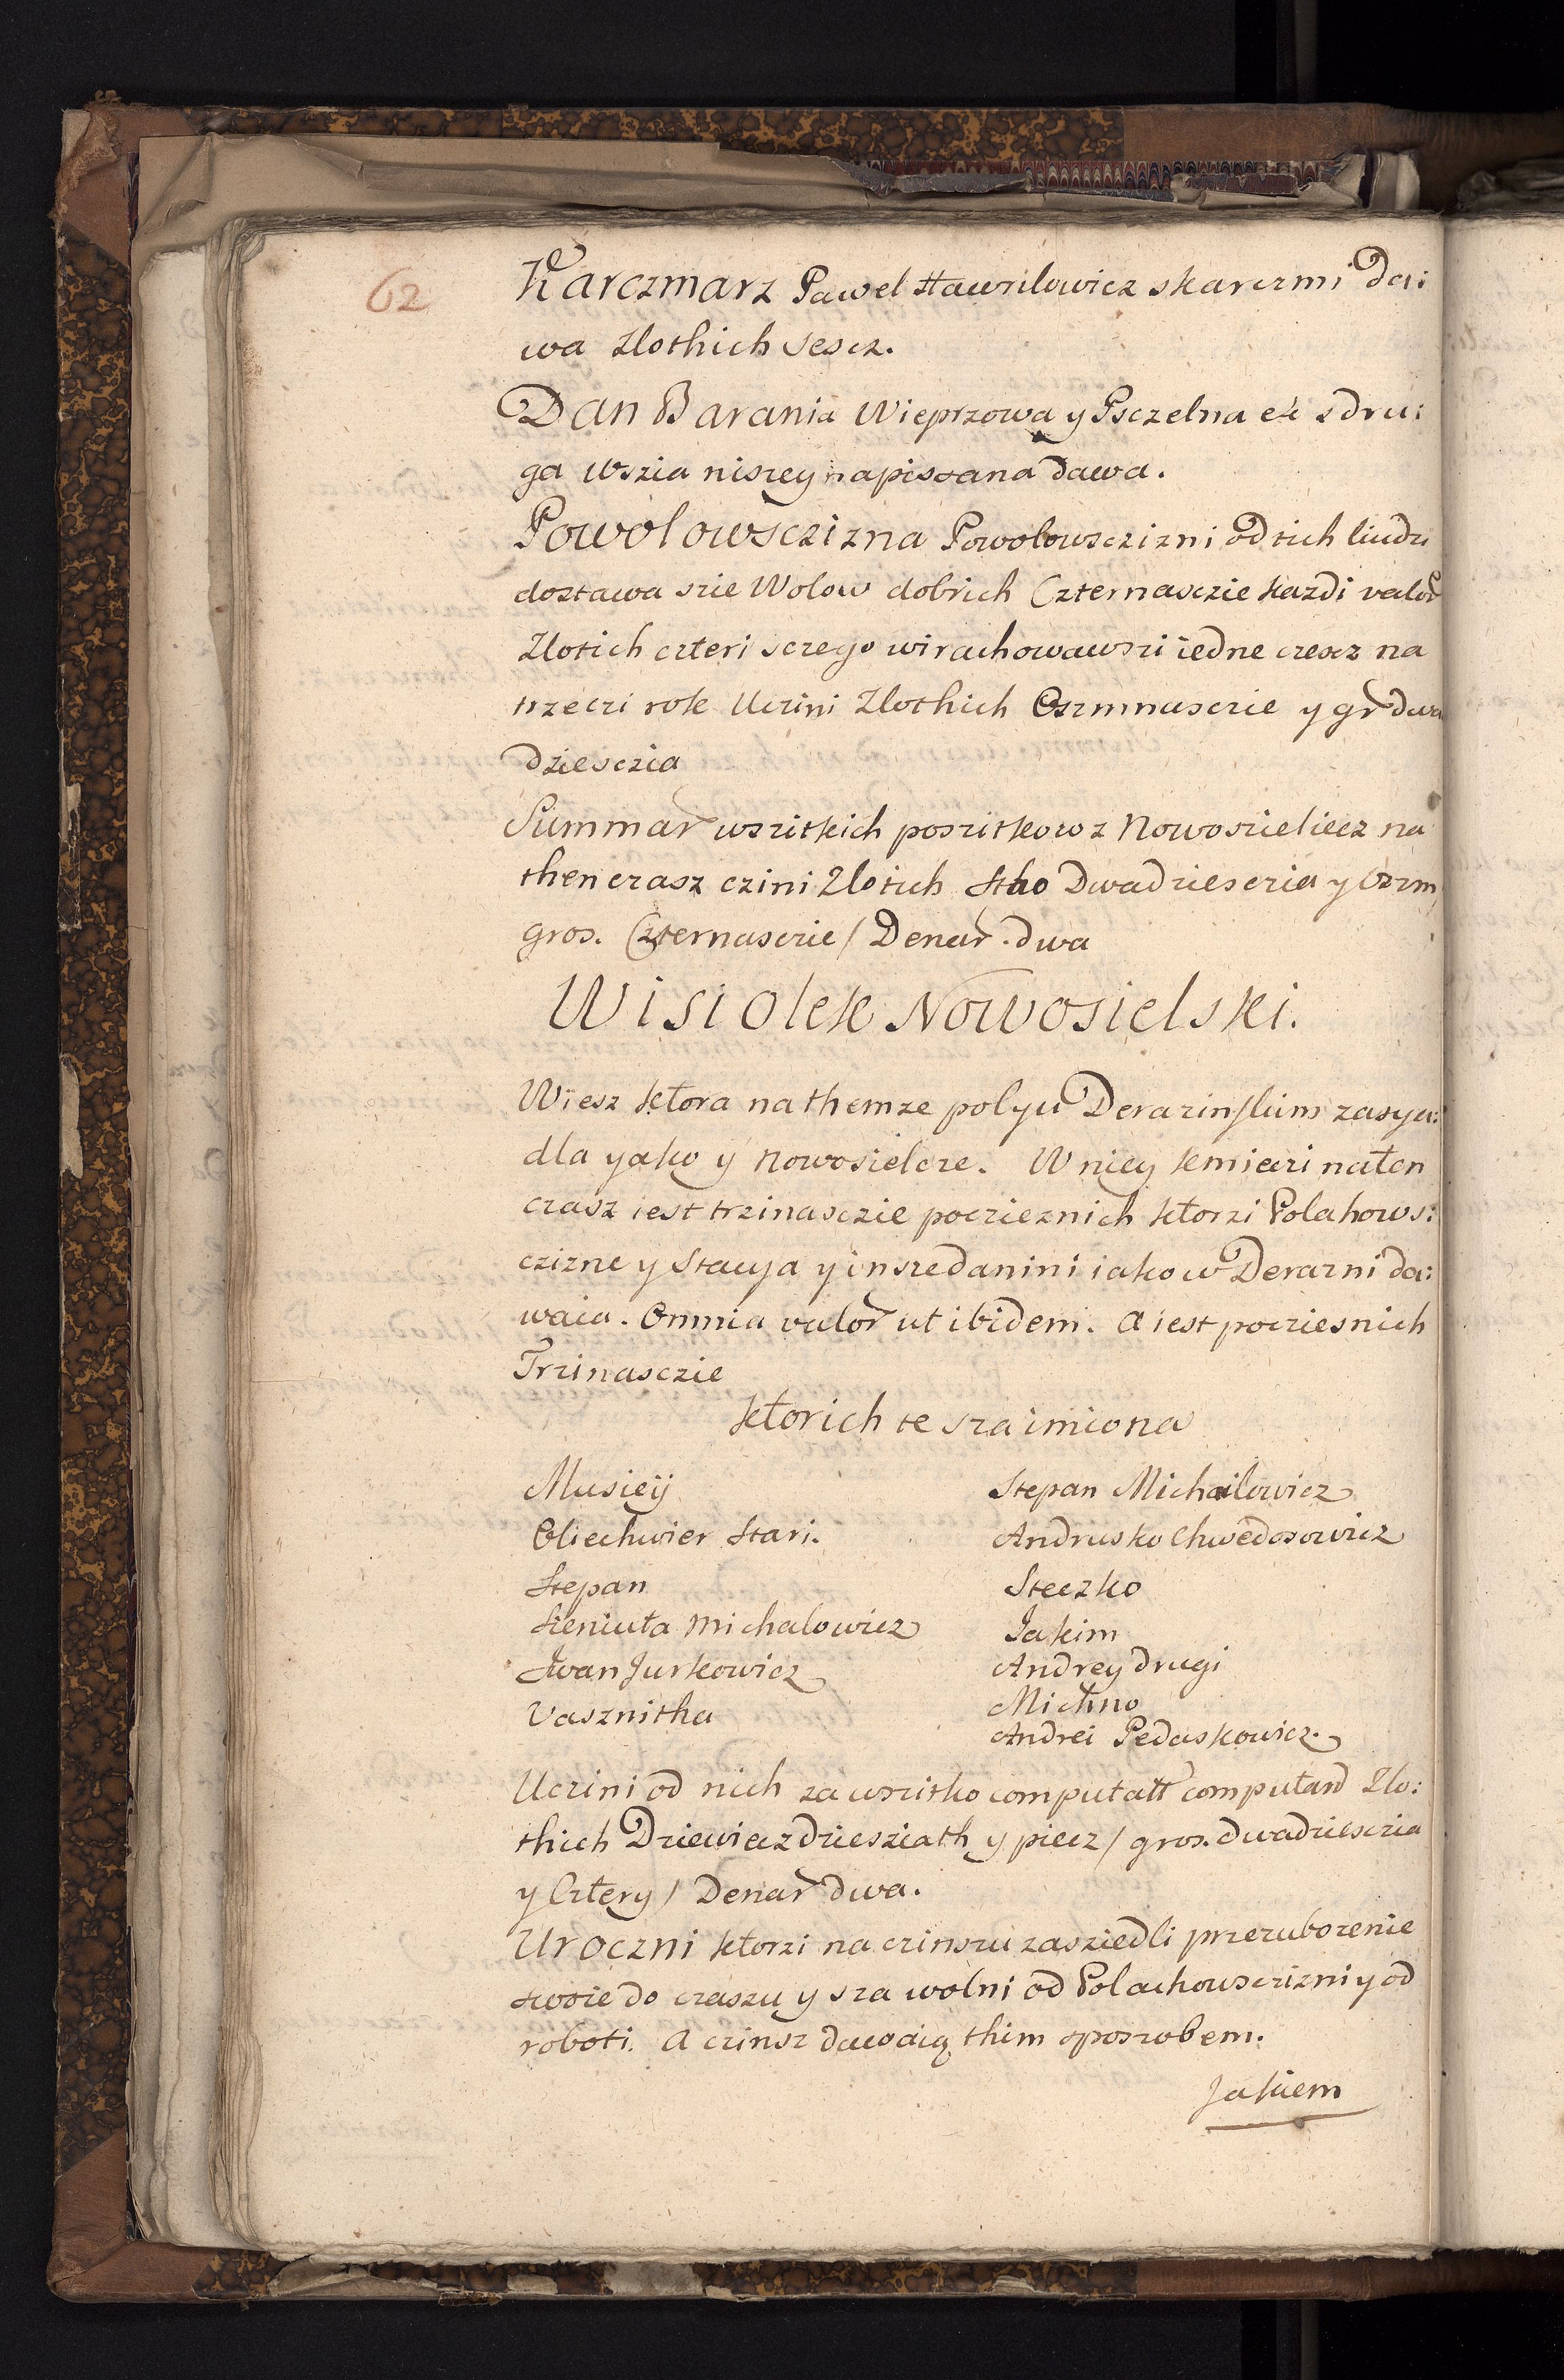 62
Karczmarz Pawel Hawrilowicz skarczmi Da:
wa Zlothich sescz.
Dan Barania Wieprzowa y Psczelna et sdru:
ga wszia niszey napissana dawa.
Powolowsczizna Powolowsczizni od tich liudzi
dostawa szie Wolow dobrich Czternasczie kazdi valor
Zlotich czteri sczego wirachowawszi iedne czescz na
trzeczi rok Uczini Zlothich Oszmnasczie y gr dwa
dziesczia
Summar wszitkich poszitkow z Nowoszieliecz na
then czasz czini Zlotich stho Dwadziesczia y Oszm
gros. Czternasczie / Denar. dwa
Wisiolek Nowosielski.
Wiesz ktora na themze polyu Derazinskim zasya:
dla yako y Nowosielcze. W niey kmieczi na ten
czasz iest trzinasczie poczieznich ktorzi Polahows:
czizne y Stacya y inszedanini iako w Derazni da:
waia. Omnia valor ut ibidem. A iest pocziesnich
Trzinasczie
ktorich te sza imiona
Musieÿ
Oliechwier stari.
Stepan
Sieniuta Michalowicz
Iwan Jurkowicz
Vasznitha
Stepan Michailowicz
Andrusko Chwedosowicz
Steczko
Jakim
Andrey drugi
Michno
Andrei Pedaskowicz.
Uczini od nich za wszitko computatt computand Zlo:
thich Dziewieczdziesziath y piecz / gros. dwadziesczia
y Cztery / Denar dwa.
Uroczni ktorzi na czinszu zasziedli przezubozenie
swoie do czaszu y sza wolni od Polachowsczizni y od
roboti. A czinsz dawaią thim sposzobem.
Jakiem